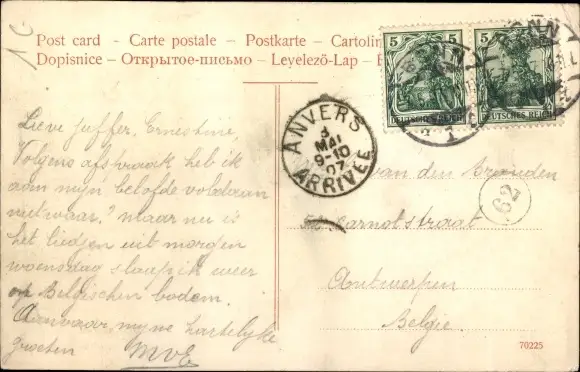 Post card - Carte postale - Postkarte -
Dopisnice - Открытое-письмо - Levelezö-Lap -
5 5
DEUTSCHES REICH DEUTSCHES REICH
BONN BONN
ANVERS
MAI
9-10
07
ARRIVÉE
62
Lieve juffer, Ernestine,
Volgens afspraak heb ik
aan mijn belofde voldaan
nietwaar? maar nu is
het liedjen uit morgen
woensdag slaap ik weer
op Belgischen bodem.
Aanvaar myne hartelijke
groeten MVE
van den
Carnotstraat
Antwerpen
Belgie.
70225